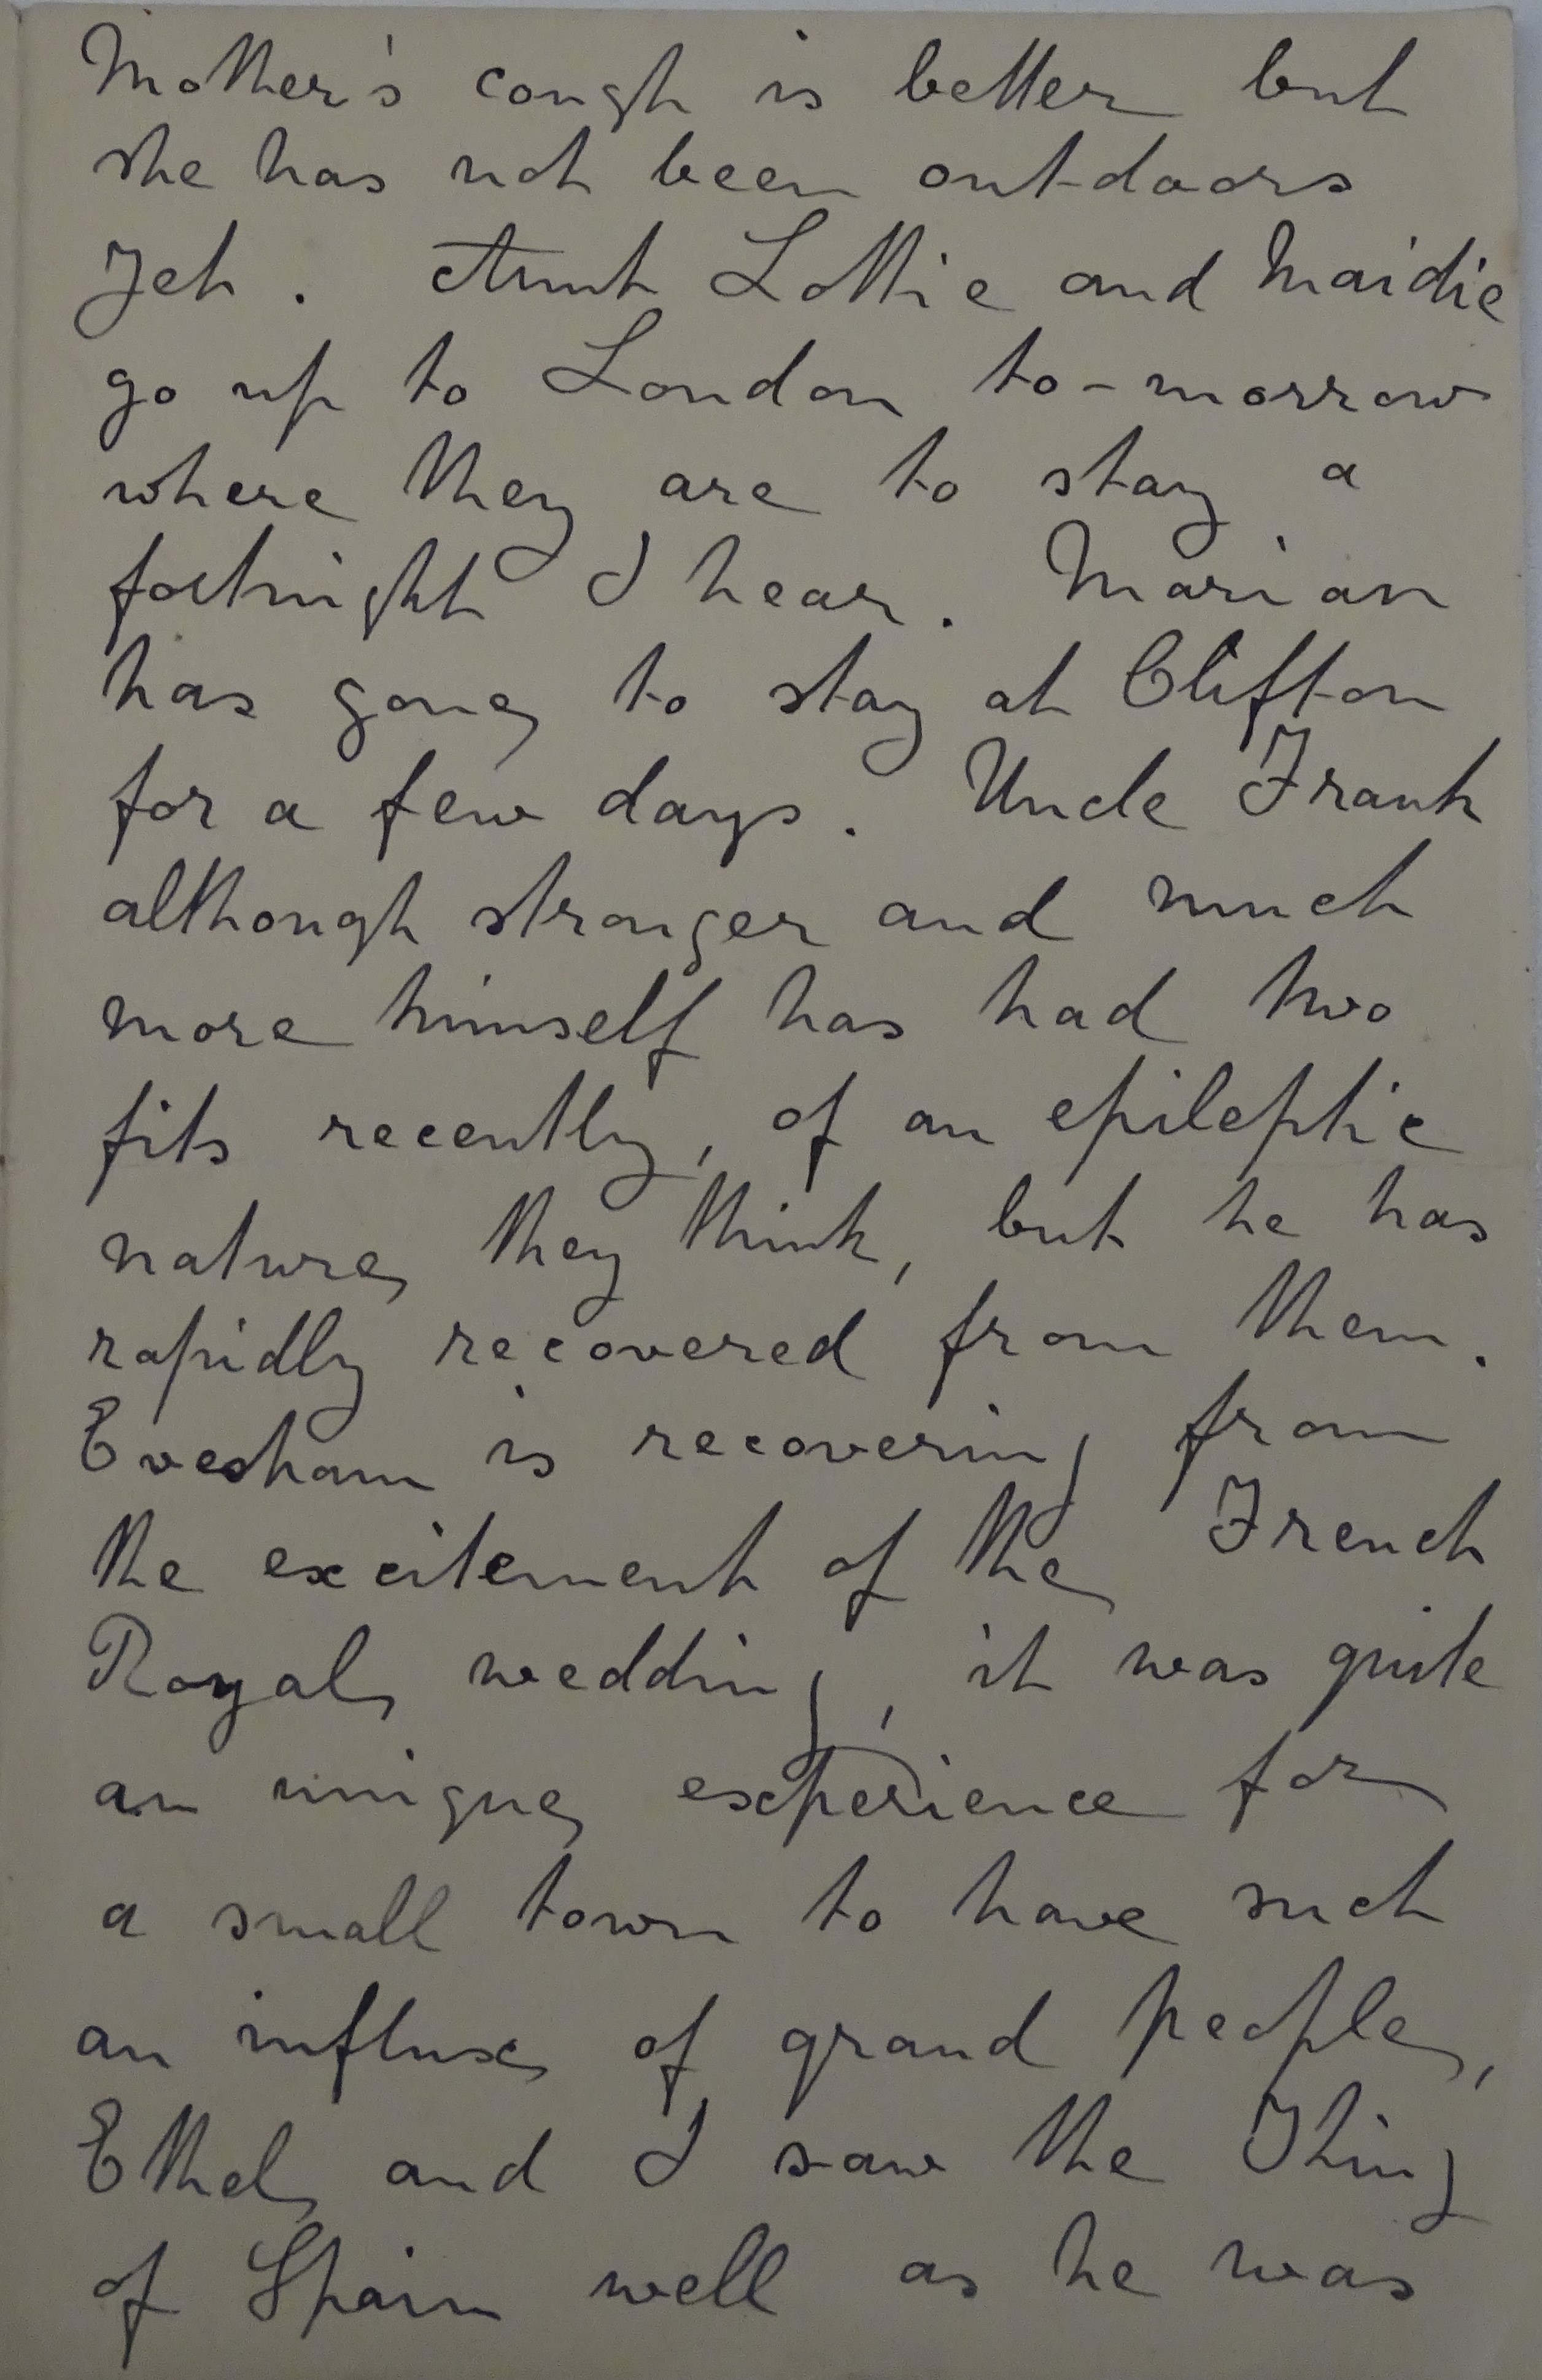 Mother's cough is better but
she has not been out-doors
yet. Aunt Lottie and Maidie
go up to London to-morrow
where they are to stay a
fortnight I hear. Marian
has gone to stay at Clifton
for a few days. Uncle Frank
although stronger and much
more himself has had two
fits recently, of an epileptic
nature they think, but he has
rapidly recovered from them.
Evesham is recovering from
the excitement of the French
Royal wedding, it was quite
an unique experience for
a small town to have such
an influx of grand people,
Ethel and I saw the King
of Spain well as he was